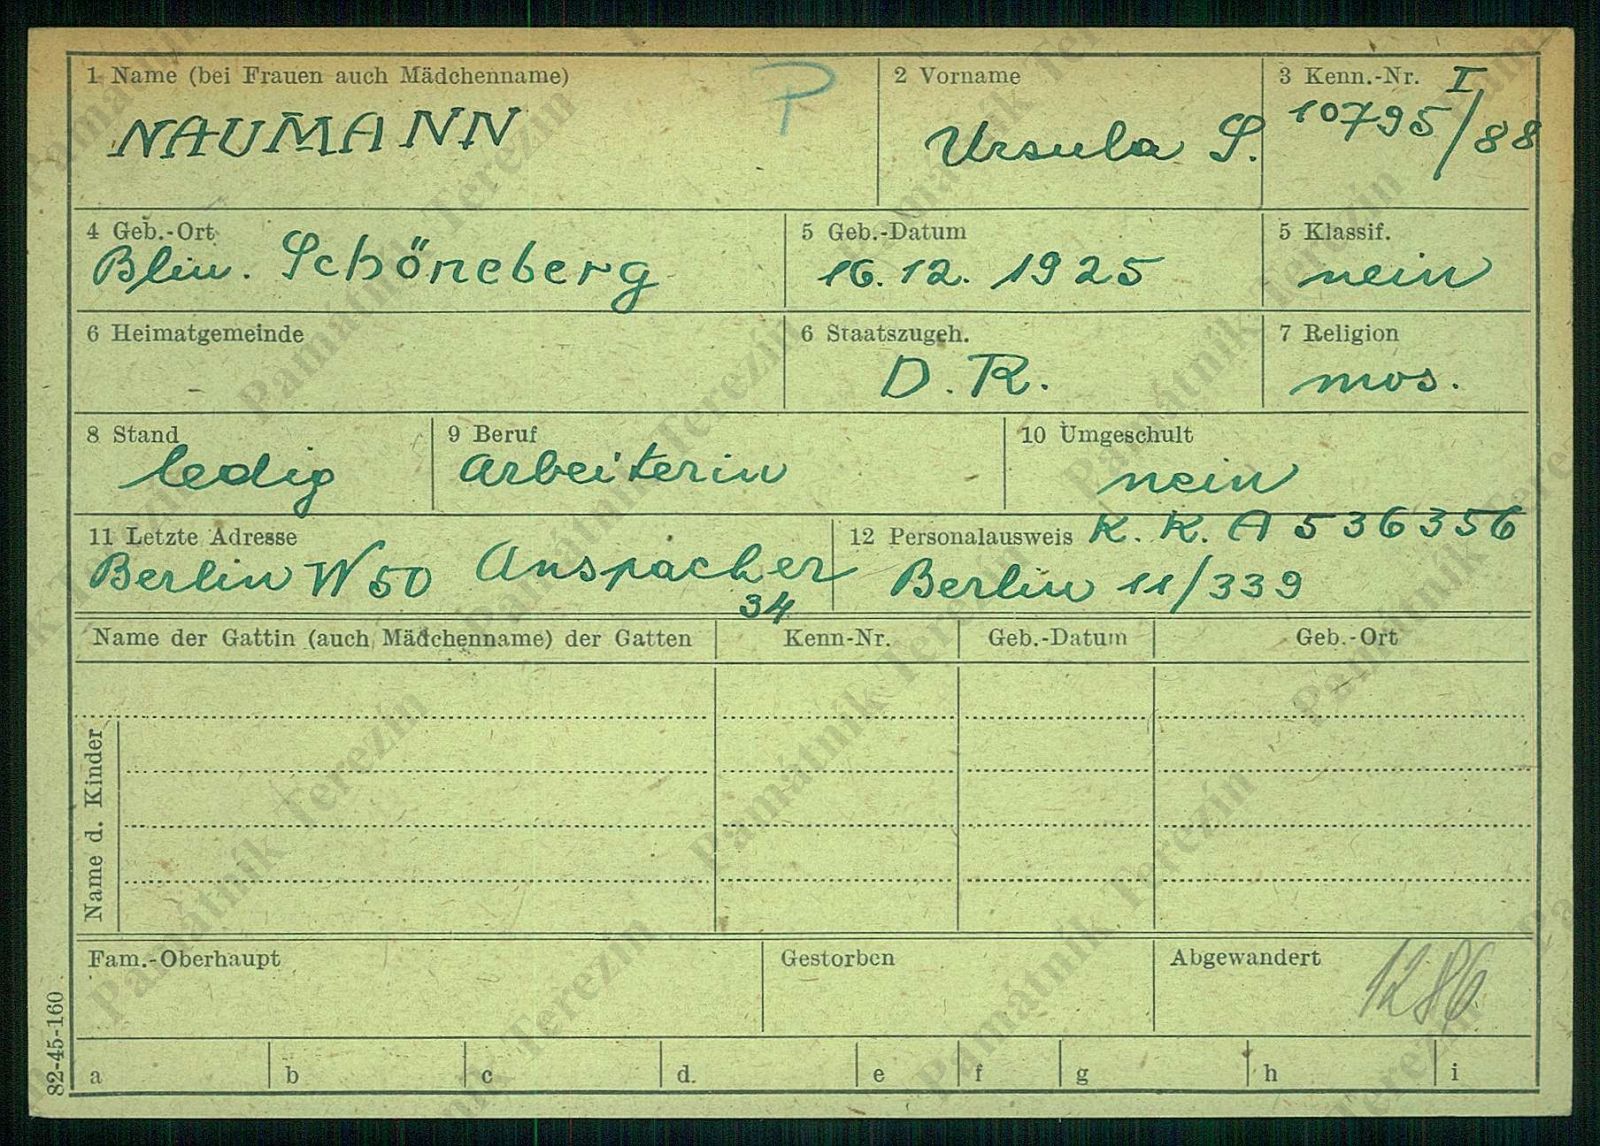 1 Name (bei Frauen auch Mädchenname)
P
NAUMANN
2 Vorname
Ursula S.
3 Kenn.-Nr. I
10795/88
4 Geb.-Ort
Blin. Schöneberg
5 Geb.-Datum
16.12. 1925
5 Klassif.
nein
6 Heimatgemeinde
-
6 Staatszugeh.
D. R.
7 Religion
mos.
8 Stand
ledig
9 Beruf
Arbeiterin
10 Umgeschult
nein
11 Letzte Adresse
Berlin W 50 Anspacher
34
12 Personalausweis K. K. A 536356
Berlin 11/339
Name der Gattin (auch Mädchenname) der Gatten
Kenn-Nr.
Geb.-Datum
Geb.-Ort
Name d. Kinder
Fam.-Oberhaupt
Gestorben
Abgewandert
1286
a b c d. e f g h i
82-45-160
Památník Terezín